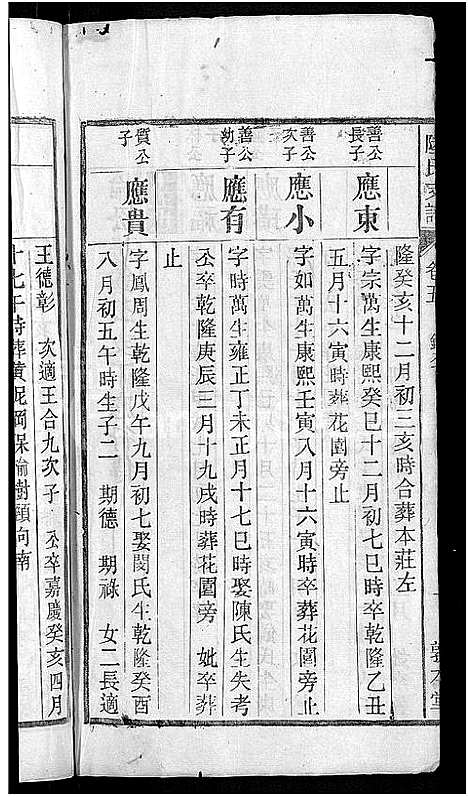 卷五
隆癸亥十二月初三亥時合葬本莊左
善公長子
應東
字宗萬生康熙癸巳十二月初七巳時卒乾隆乙丑
五月十六寅時葬花園旁止
善公次子
應小
字如萬生康熙壬寅八月十六寅時卒葬花園旁止
善公幼子
應有
字時萬生雍正丁未正月十七巳時娶陳氏生失考
公卒乾隆庚辰三月十九戌時葬花園旁 妣卒葬
止
質公子
應貴
字鳳周生乾隆戊午九月初七娶閔氏生乾隆癸酉
八月初五午時生子二 期德 期祿 女二長適
王德彰 次適王合九次子 公卒嘉慶癸亥四月
十七午時葬黃泥岡保榆樹頭向南